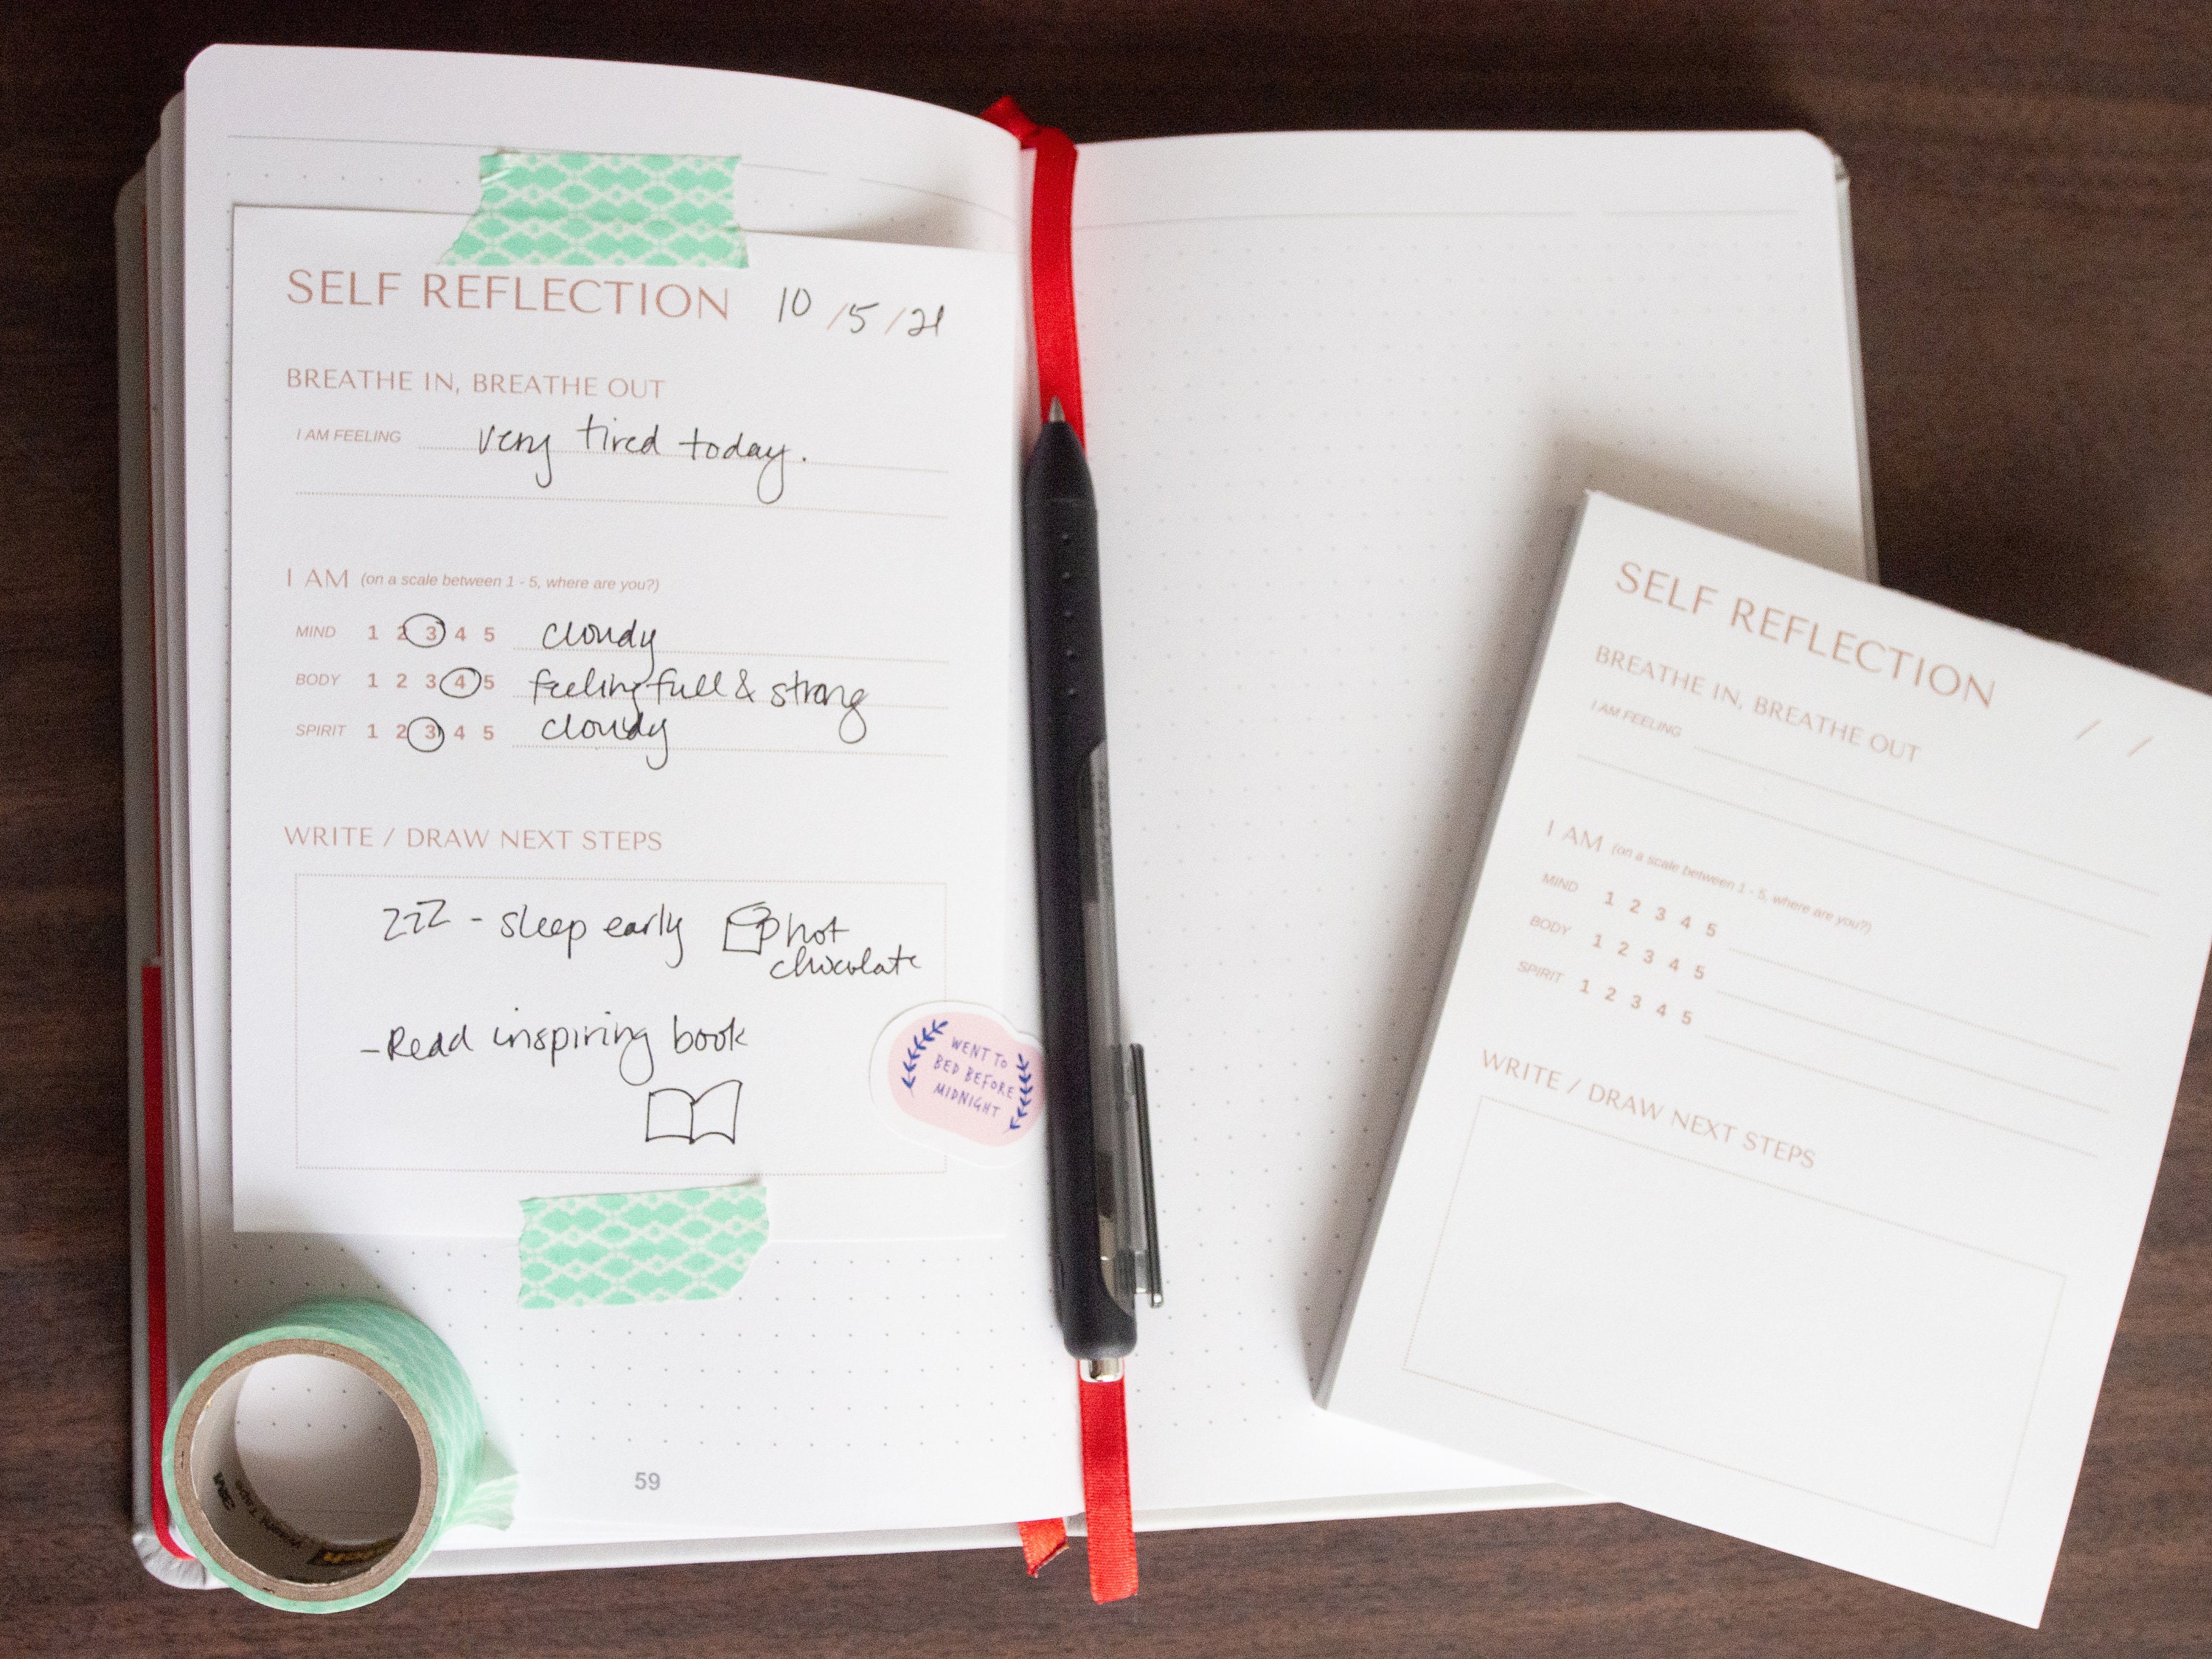 SELF REFLECTION 10/5/21
BREATHE IN, BREATHE OUT
I AM FEELING very tired today.
I AM (on a scale between 1 - 5, where are you?)
MIND 1 2 3 4 5 cloudy
BODY 1 2 3 4 5 feeling full & strong
SPIRIT 1 2 3 4 5 cloudy
WRITE / DRAW NEXT STEPS
zzz - sleep early hot
chocolate
-Read inspiring book
WENT TO
BED BEFORE
MIDNIGHT
59
3M
SELF REFLECTION / /
BREATHE IN, BREATHE OUT
I AM FEELING
I AM (on a scale between 1 - 5, where are you?)
MIND 1 2 3 4 5
BODY 1 2 3 4 5
SPIRIT 1 2 3 4 5
WRITE / DRAW NEXT STEPS